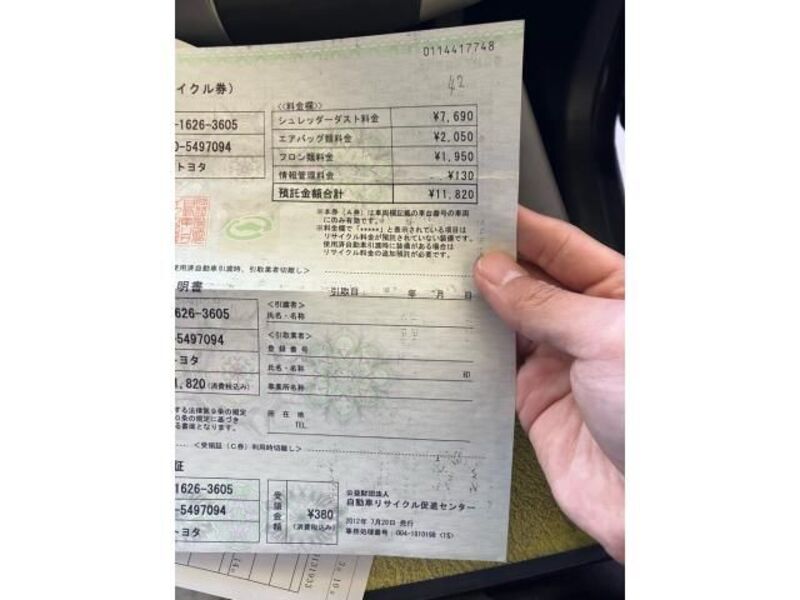 0114417748
42
イクル券)
-1626-3605
0-5497094
トヨタ
<<料金欄>>
シュレッダーダスト料金 ¥7,690
エアバッグ類料金 ¥2,050
フロン類料金 ¥1,950
情報管理料金 ¥130
預託金額合計 ¥11,820
※本券(A券)は車両欄記載の車台番号の車両
にのみ有効です。
※料金欄で「*****」と表示されている項目は
リサイクル料金が預託されていない装備です。
使用済自動車引渡時に装備がある場合は
リサイクル料金の追加預託が必要です。
使用済自動車引渡時、引取業者切離し>
明書
引取日 年 月 日
626-3605
-5497094
トヨタ
1,820(消費税込み)
<引渡者>
氏名・名称
<引取業者>
登録番号
氏名・名称 印
事業所名称
所在地
TEL
する法律第9条の規定
0条の規定に基づき
る書面となります。
<受領証(C券)利用時切離し>
証
1626-3605
-5497094
トヨタ
受領金額 ¥380
(消費税込み)
公益財団法人
自動車リサイクル促進センター
2012年 7月20日 発行
事務処理番号:004-1810198 <TS>
131933